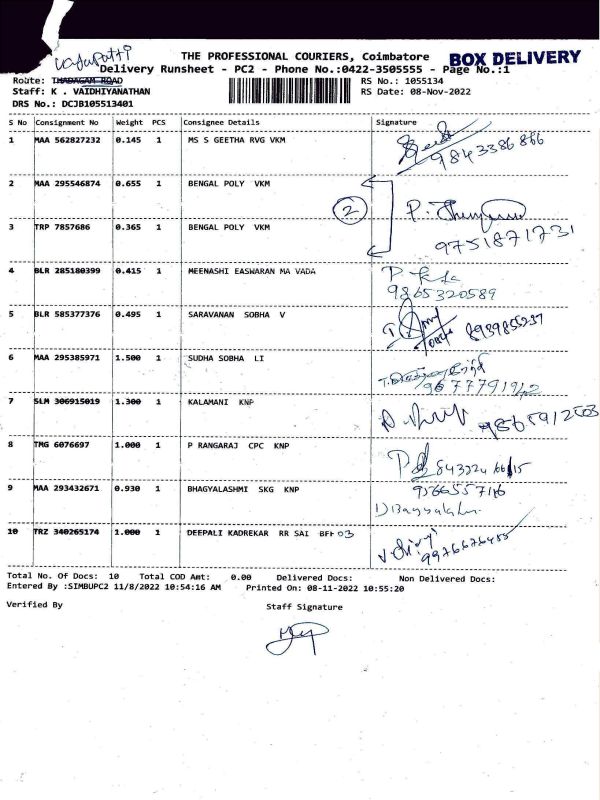 THE PROFESSIONAL COURIERS, Coimbatore
BOX DELIVERY
Delivery Runsheet - PC2 - Phone No.:0422-3505555 - Page No.:1
Route: THADAGAM ROAD
RS No.: 1055134
Staff: K . VAIDHIYANATHAN
RS Date: 08-Nov-2022
DRS No.: DCJB105513401
S No Consignment No Weight PCS Consignee Details Signature
1 MAA 562827232 0.145 1 MS S GEETHA RVG VKM
9843386866
2 MAA 295546874 0.655 1 BENGAL POLY VKM
2
3 TRP 7857686 0.365 1 BENGAL POLY VKM
9751871731
4 BLR 285180399 0.415 1 MEENASHI EASWARAN MA VADA
9865320589
5 BLR 585377376 0.495 1 SARAVANAN SOBHA V
6 MAA 295385971 1.500 1 SUDHA SOBHA LI
9677791942
7 SLM 306915019 1.300 1 KALAMANI KNP
8 TMG 6076697 1.000 1 P RANGARAJ CPC KNP
9 MAA 293432671 0.930 1 BHAGYALASHMI SKG KNP
10 TRZ 340265174 1.000 1 DEEPALI KADREKAR RR SAI BFH 03
Total No. Of Docs: 10 Total COD Amt: 0.00 Delivered Docs: Non Delivered Docs:
Entered By :SIMBUPC2 11/8/2022 10:54:16 AM Printed On: 08-11-2022 10:55:20
Verified By Staff Signature